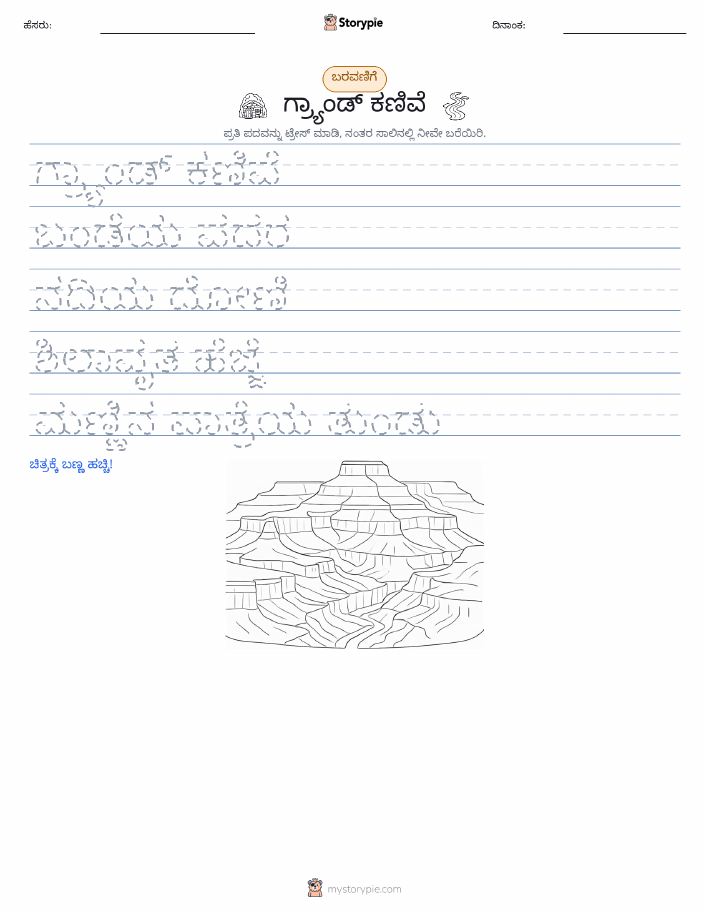 ಹೆಸರು: Storypie ದಿನಾಂಕ:
ಬರವಣಿಗೆ
ಗ್ರ್ಯಾಂಡ್ ಕಣಿವೆ
ಪ್ರತಿ ಪದವನ್ನು ಟ್ರೇಸ್ ಮಾಡಿ, ನಂತರ ಸಾಲಿನಲ್ಲಿ ನೀವೇ ಬರೆಯಿರಿ.
ಗ್ರ್ಯಾಂಡ್ ಕಣಿವೆ
ಬಂಡೆಯ ಪದರ
ನದಿಯ ದೋಣಿ
ಶಿಲಾವೃತ ಹೆಜ್ಜೆ
ಮಣ್ಣಿನ ಪಾತ್ರೆಯ ತುಂಡು
ಚಿತ್ರಕ್ಕೆ ಬಣ್ಣ ಹಚ್ಚಿ!
mystorypie.com